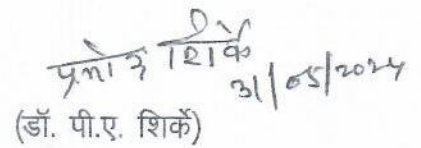 प्रमोद शिर्के
31/05/2024
(डॉ. पी.ए. शिर्के)